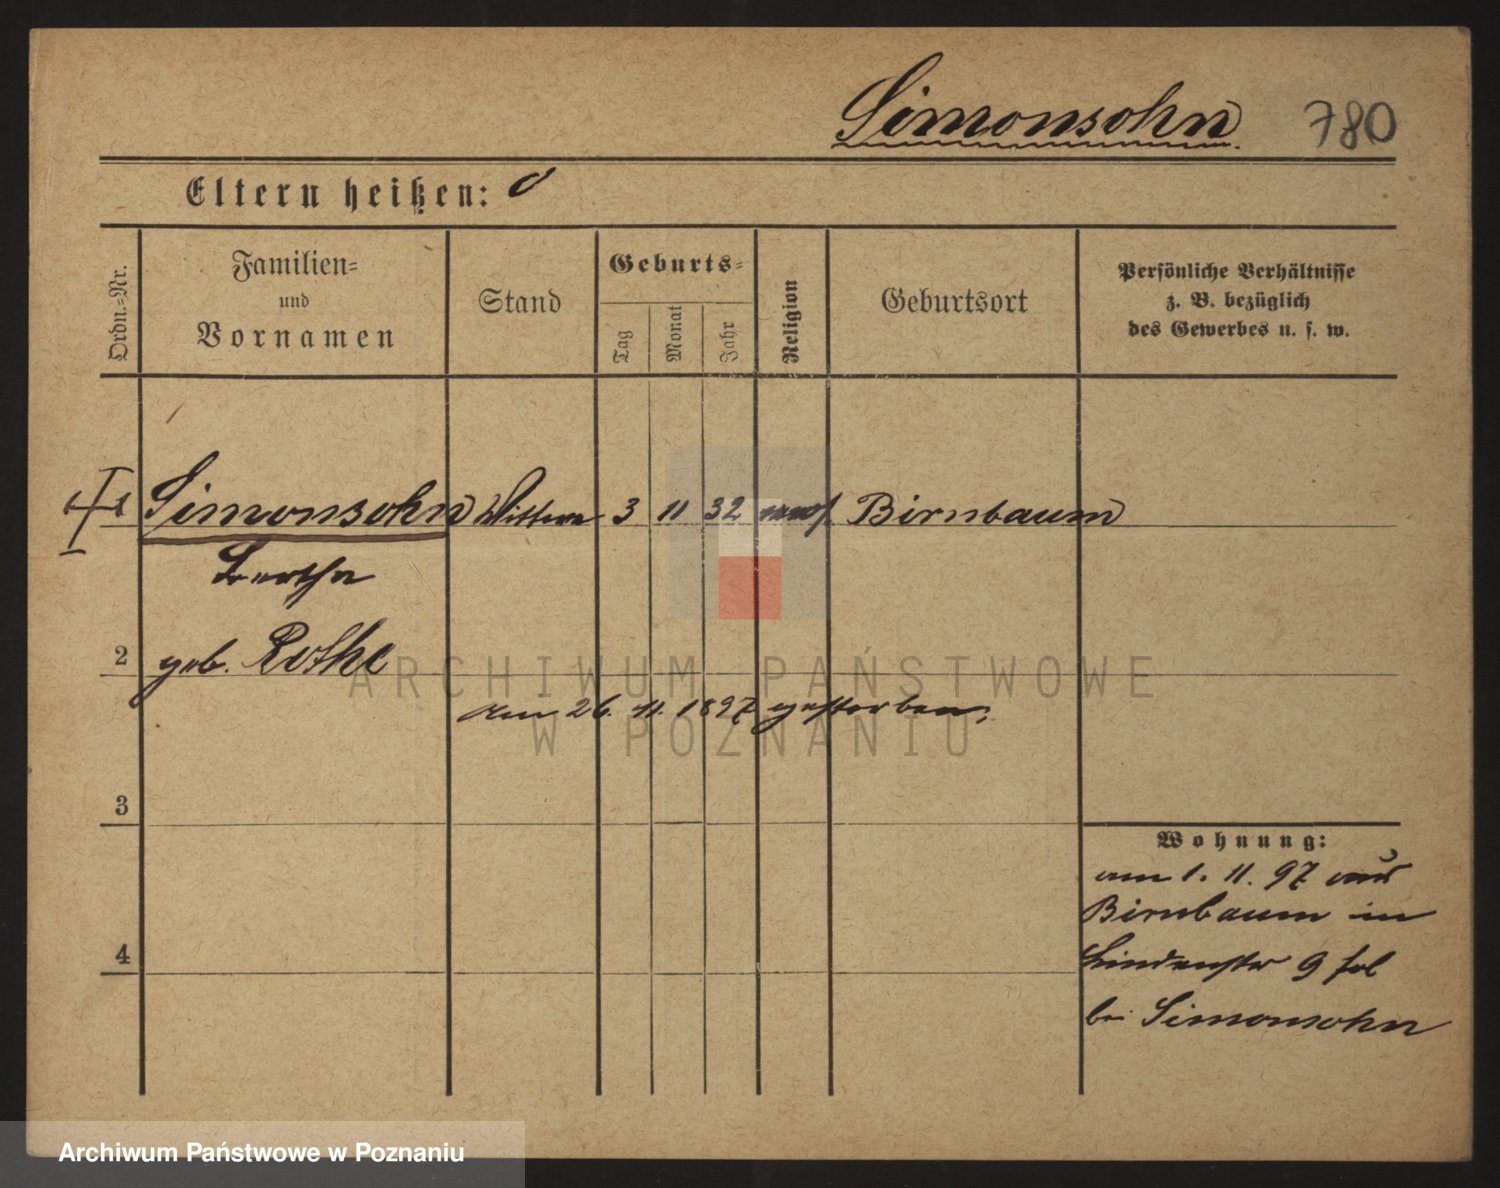 Simonsohn 780
Eltern heißen:
Ordn.-Nr.
Familien-
und
Vornamen
Stand
Geburts-
Tag
Monat
Jahr
Religion
Geburtsort
Persönliche Verhältnisse
z. B. bezüglich
des Gewerbes u. s. w.
1 Simonsohn Wittwe 3 11 32 mos Birnbaum
Bertha
2 geb. Rothe
am 26. 11. 1897 gestorben.
3
4
Wohnung:
am 1. 11. 97 aus
Birnbaum in
Lindenstr 9
bei Simonsohn
ARCHIWUM PAŃSTWOWE
W POZNANIU
Archiwum Państwowe w Poznaniu